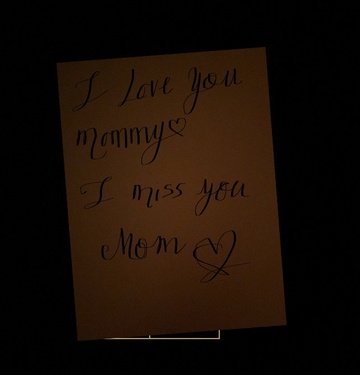 I Love You
Mommy♡
I miss you
Mom ♡